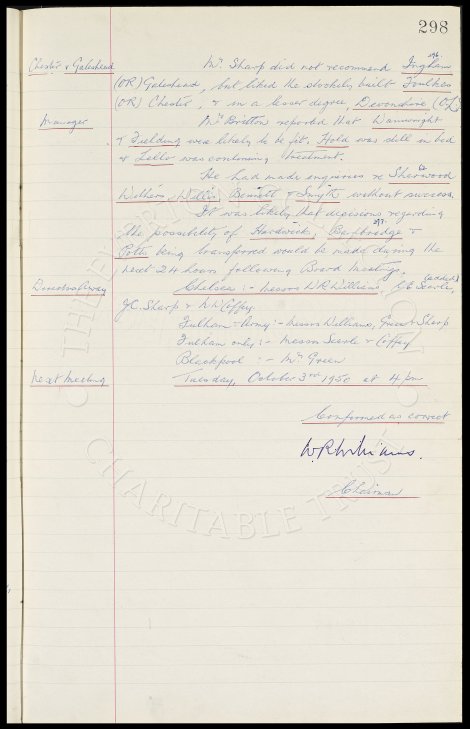 298
Chester & Gateshead Mr. Sharp did not recommend Ingham
(OR) Gateshead, but liked the stockily built Foulkes
(OR) Chester, & in a lesser degree, Devonshire (OL).
Manager Mr. Britton reported that Wainwright
& Fielding were likely to be fit, Hold was still in bed
& Lello was continuing treatment.
He had made enquiries re Sherwood
Withers, Willis, Bennett & Smyth without success.
It was likely that decisions regarding
the possibility of Hardwick, &
Potts being transferred would be made during the
next 24 hours following Board Meetings.
(added)
Directors Away Chelsea :- Messrs W R Williams, C E Searle,
J.C. Sharp & N W Coffey.
Fulham & Army :- Messrs Williams, Green & Sharp
Fulham only :- Messrs Searle & Coffey
Blackpool :- Mr. Green
Next Meeting Tuesday, October 3rd 1950 at 4 pm
Confirmed as correct
W.R. Williams.
Chairman
THE EVERTON
CHARITABLE TRUST